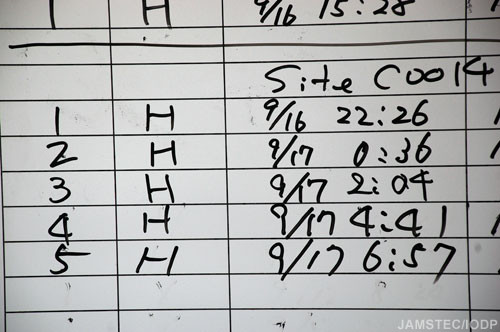 1 H 9/16 15:28
Site C0014
1 H 9/16 22:26
2 H 9/17 0:36
3 H 9/17 2:04
4 H 9/17 4:41
5 H 9/17 6:57
JAMSTEC/IODP